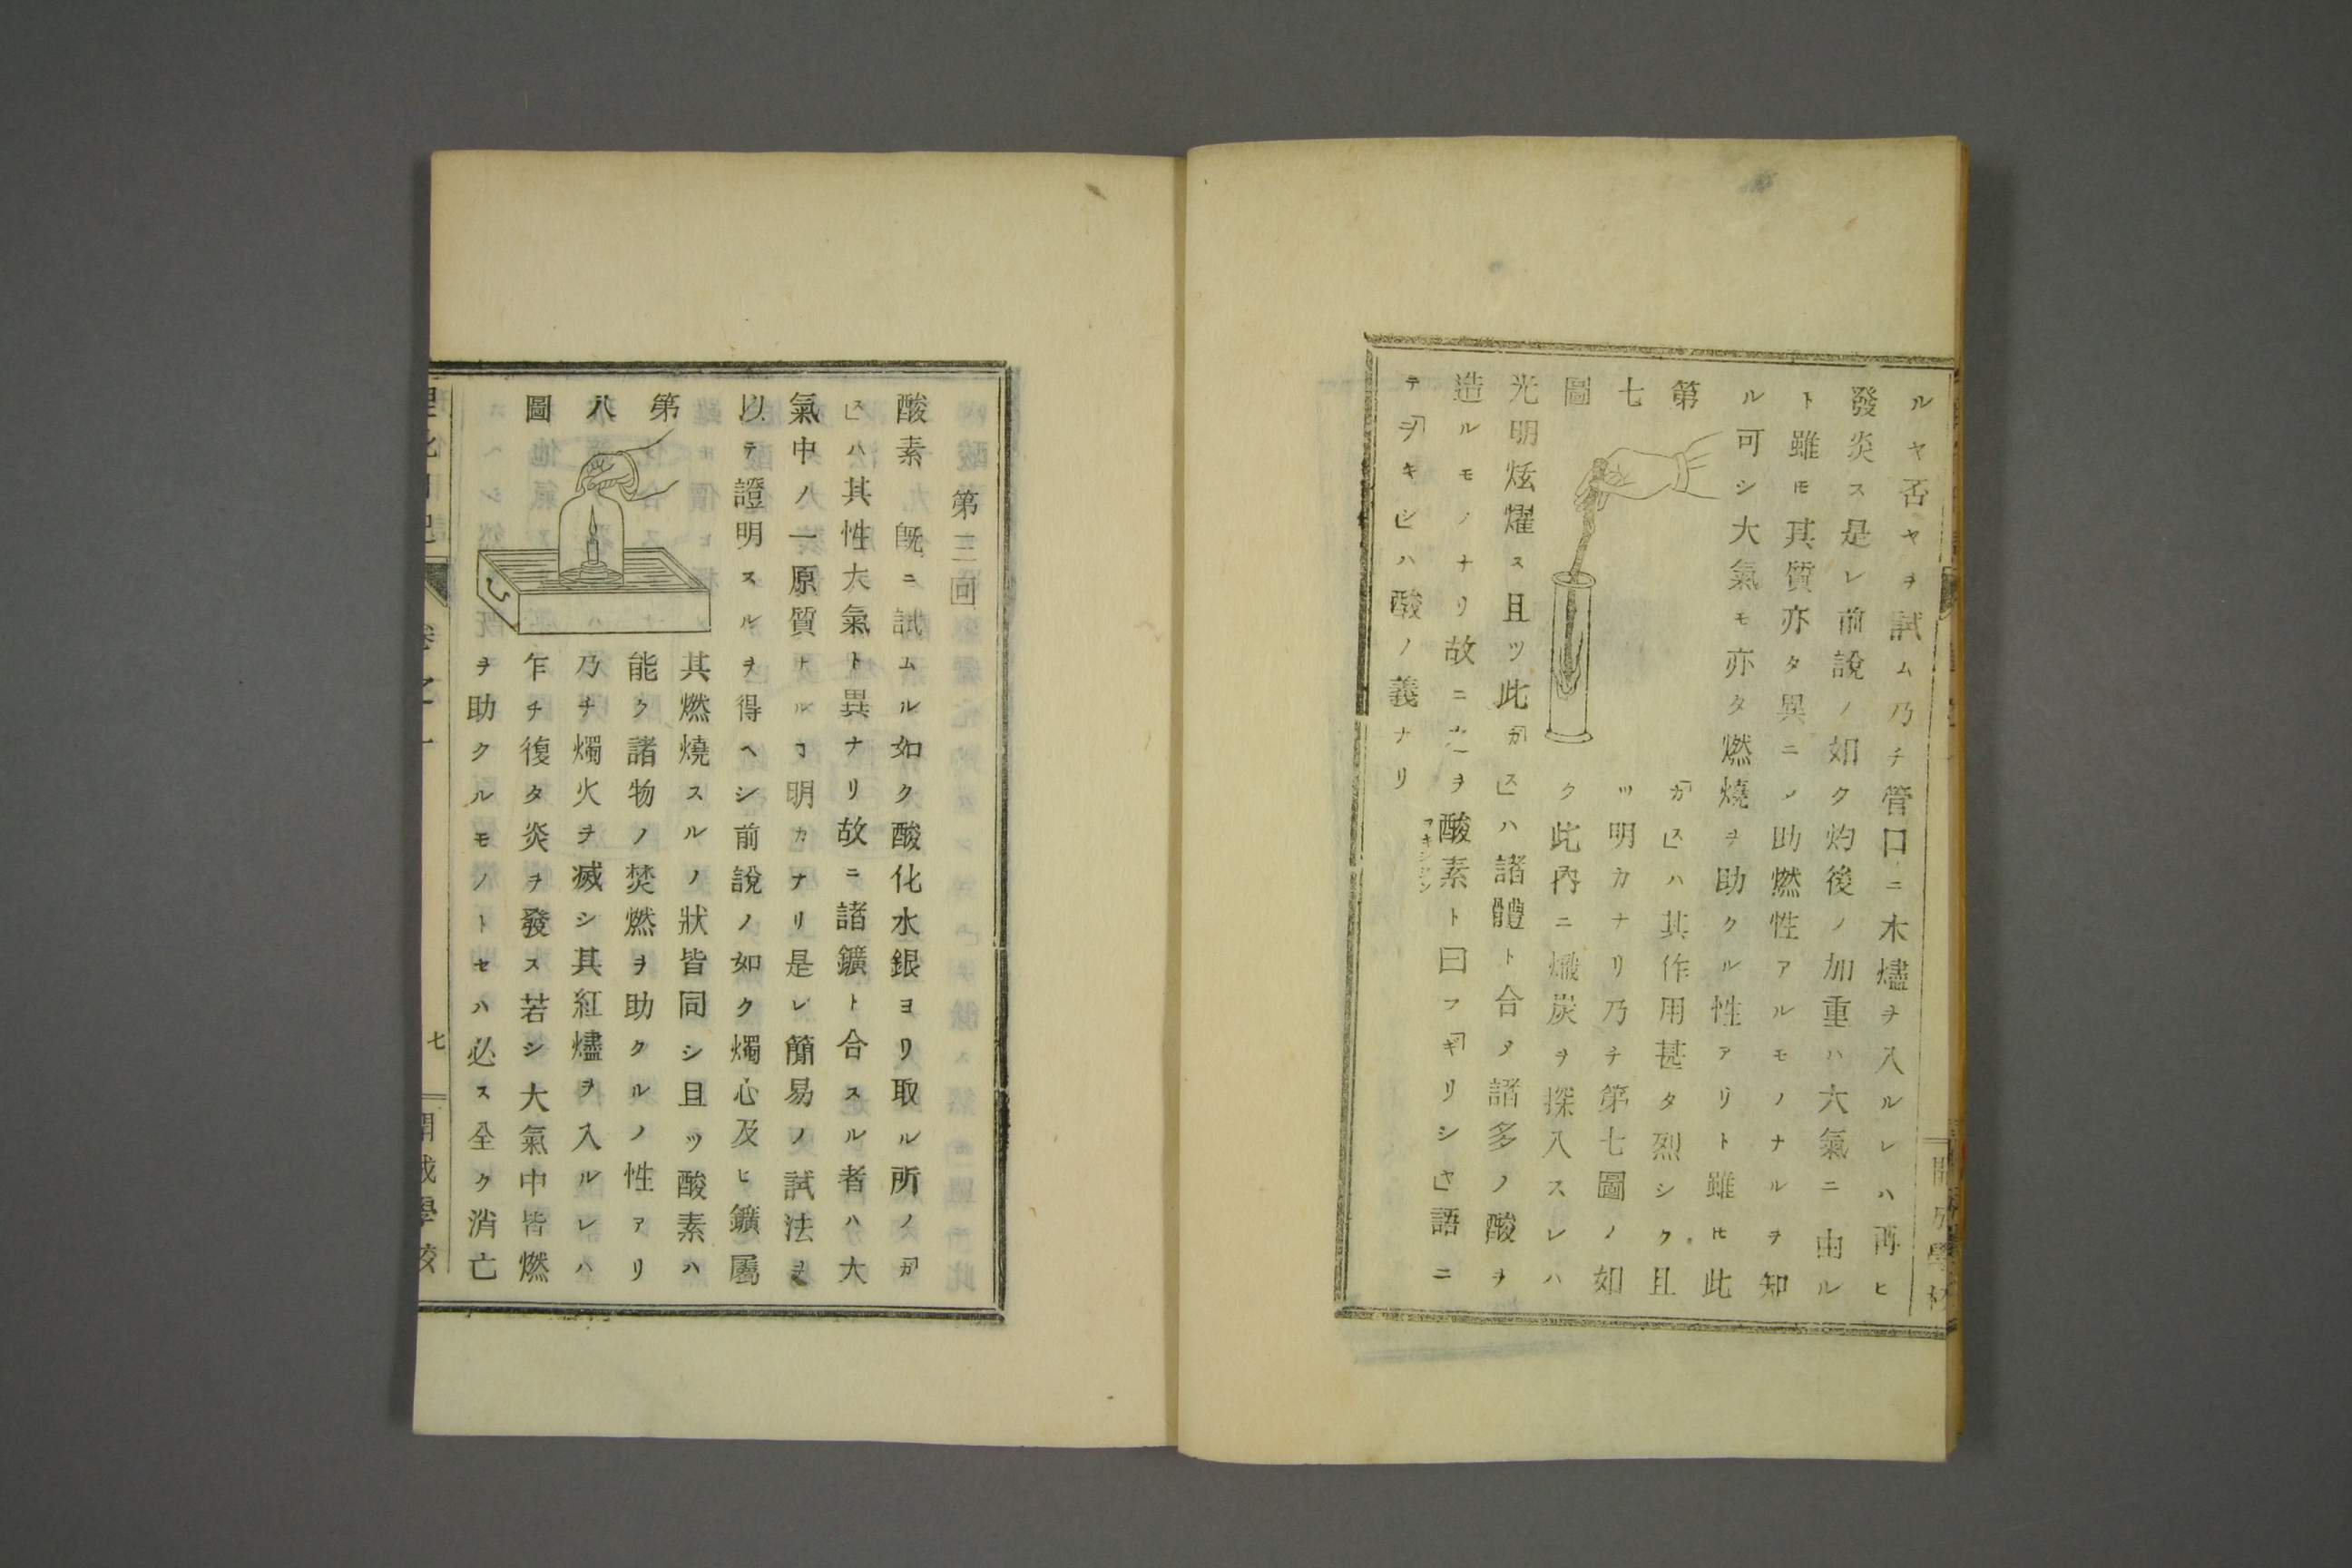 ルヤ否ヤヲ試ム乃チ管口ニ木燼ヲ入ルレハ再ヒ
發炎ス是レ前說ノ如ク灼後ノ加重ハ大氣ニ由ル
ト雖𪜈其質亦タ異ニノ助燃性アルモノナルヲ知
ル可シ大氣モ亦タ燃燒ヲ助クル性アリト雖𪜈此
第七圖
「ガス」ハ其作用甚タ烈シク且
ツ明カナリ乃チ第七圖ノ如
ク此內ニ熾炭ヲ探入スレハ
光明炫燿ス且ツ此「ガス」ハ諸體ト合タ諸多ノ酸ヲ
造ルモノナリ故ニ之ヲ酸素ト曰フ「ギリシヤ」語ニ
テ「ヲキシ」ハ酸ノ義ナリ
第三回
酸素 旣ニ試ムル如ク酸化水銀ヨリ取ル所ノ「ガ
ス」ハ其性大氣ト異ナリ故ニ諸鑛ト合スル者ハ大
氣中ノ一原質トルヿ明カナリ是レ簡易ノ試法ヲ
以テ證明スルヲ得ヘシ前說ノ如ク燭心及ヒ鑛屬
第八圖
其燃燒スルノ狀皆同シ且ツ酸素ハ
能ク諸物ノ焚燃ヲ助クルノ性アリ
乃チ燭火ヲ滅シ其紅燼ヲ入ルレハ
乍チ復タ炎ヲ發ス若シ大氣中皆燃
ヲ助クルモノトセハ必ス全ク消亡
七